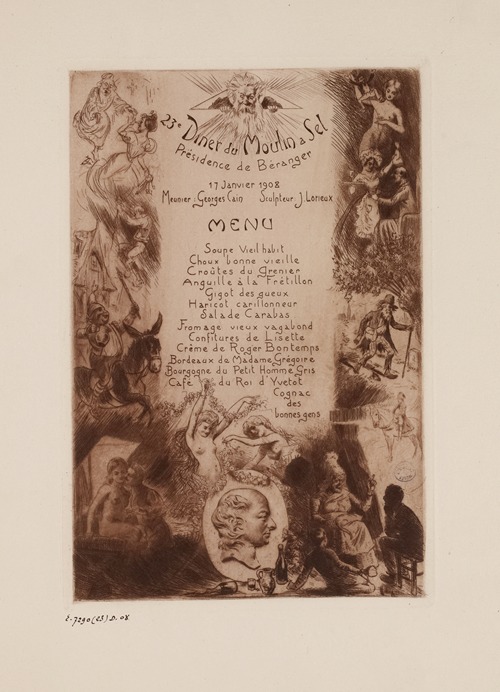 23e Diner du Moulin a Sel
Présidence de Béranger
17 Janvier 1908
Meunier: Georges Cain Sculpteur J. Lorieux
MENU
Soupe Vieil habit
Choux bonne vieille
Croûtes du Grenier
Anguille à la Frétillon
Gigot des gueux
Haricot carillonneur
Salade Carabas
Fromage vieux vagabond
Confitures de Lisette
Crème de Roger Bontemps
Bordeaux de Madame Grégoire
Bourgogne du Petit Homme Gris
Café du Roi d'Yvetot
Cognac
des
bonnes gens
E.7290(23) D.08